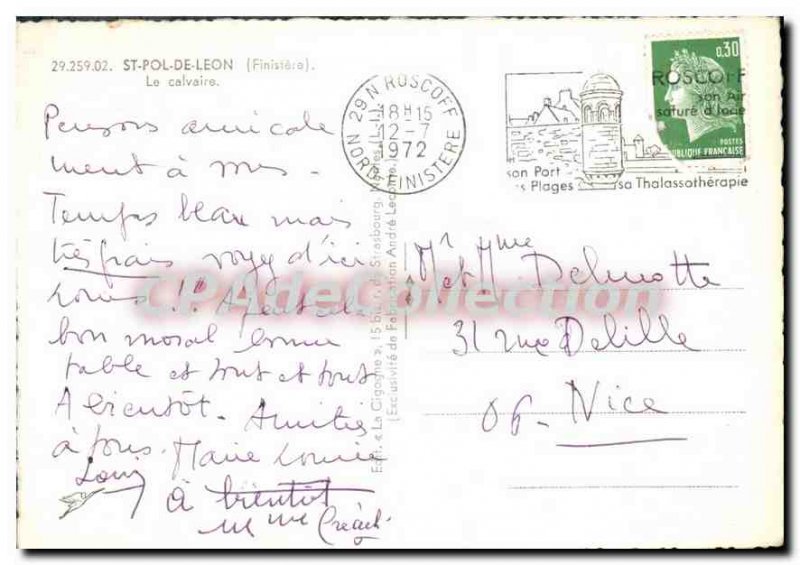 29.259.02. ST-POL-DE-LEON (Finistère).
Le calvaire.
29 N ROSCOFF
18 H 15
12-7
1972
NORD-FINISTERE
0,30
ROSCOFF
son Air
saturé d'iode
POSTES
REPUBLIQUE FRANÇAISE
son Port
ses Plages sa Thalassothérapie
Pensons amicale
ment à
Temps beau mais
très frais voyez d'ici
Louis
bon moral bonne
table et tout et tout
A bientôt. Amitiés
à tous. Marie Louise
Louis
à bientôt
Mme
Mr Mme
et M. Delmotte
31 rue Delille
06. Nice
Edit. « La Cigogne », 15 Strasbourg,
(Exclusivité de Fabrication André Leconte)
CPAdeCollection